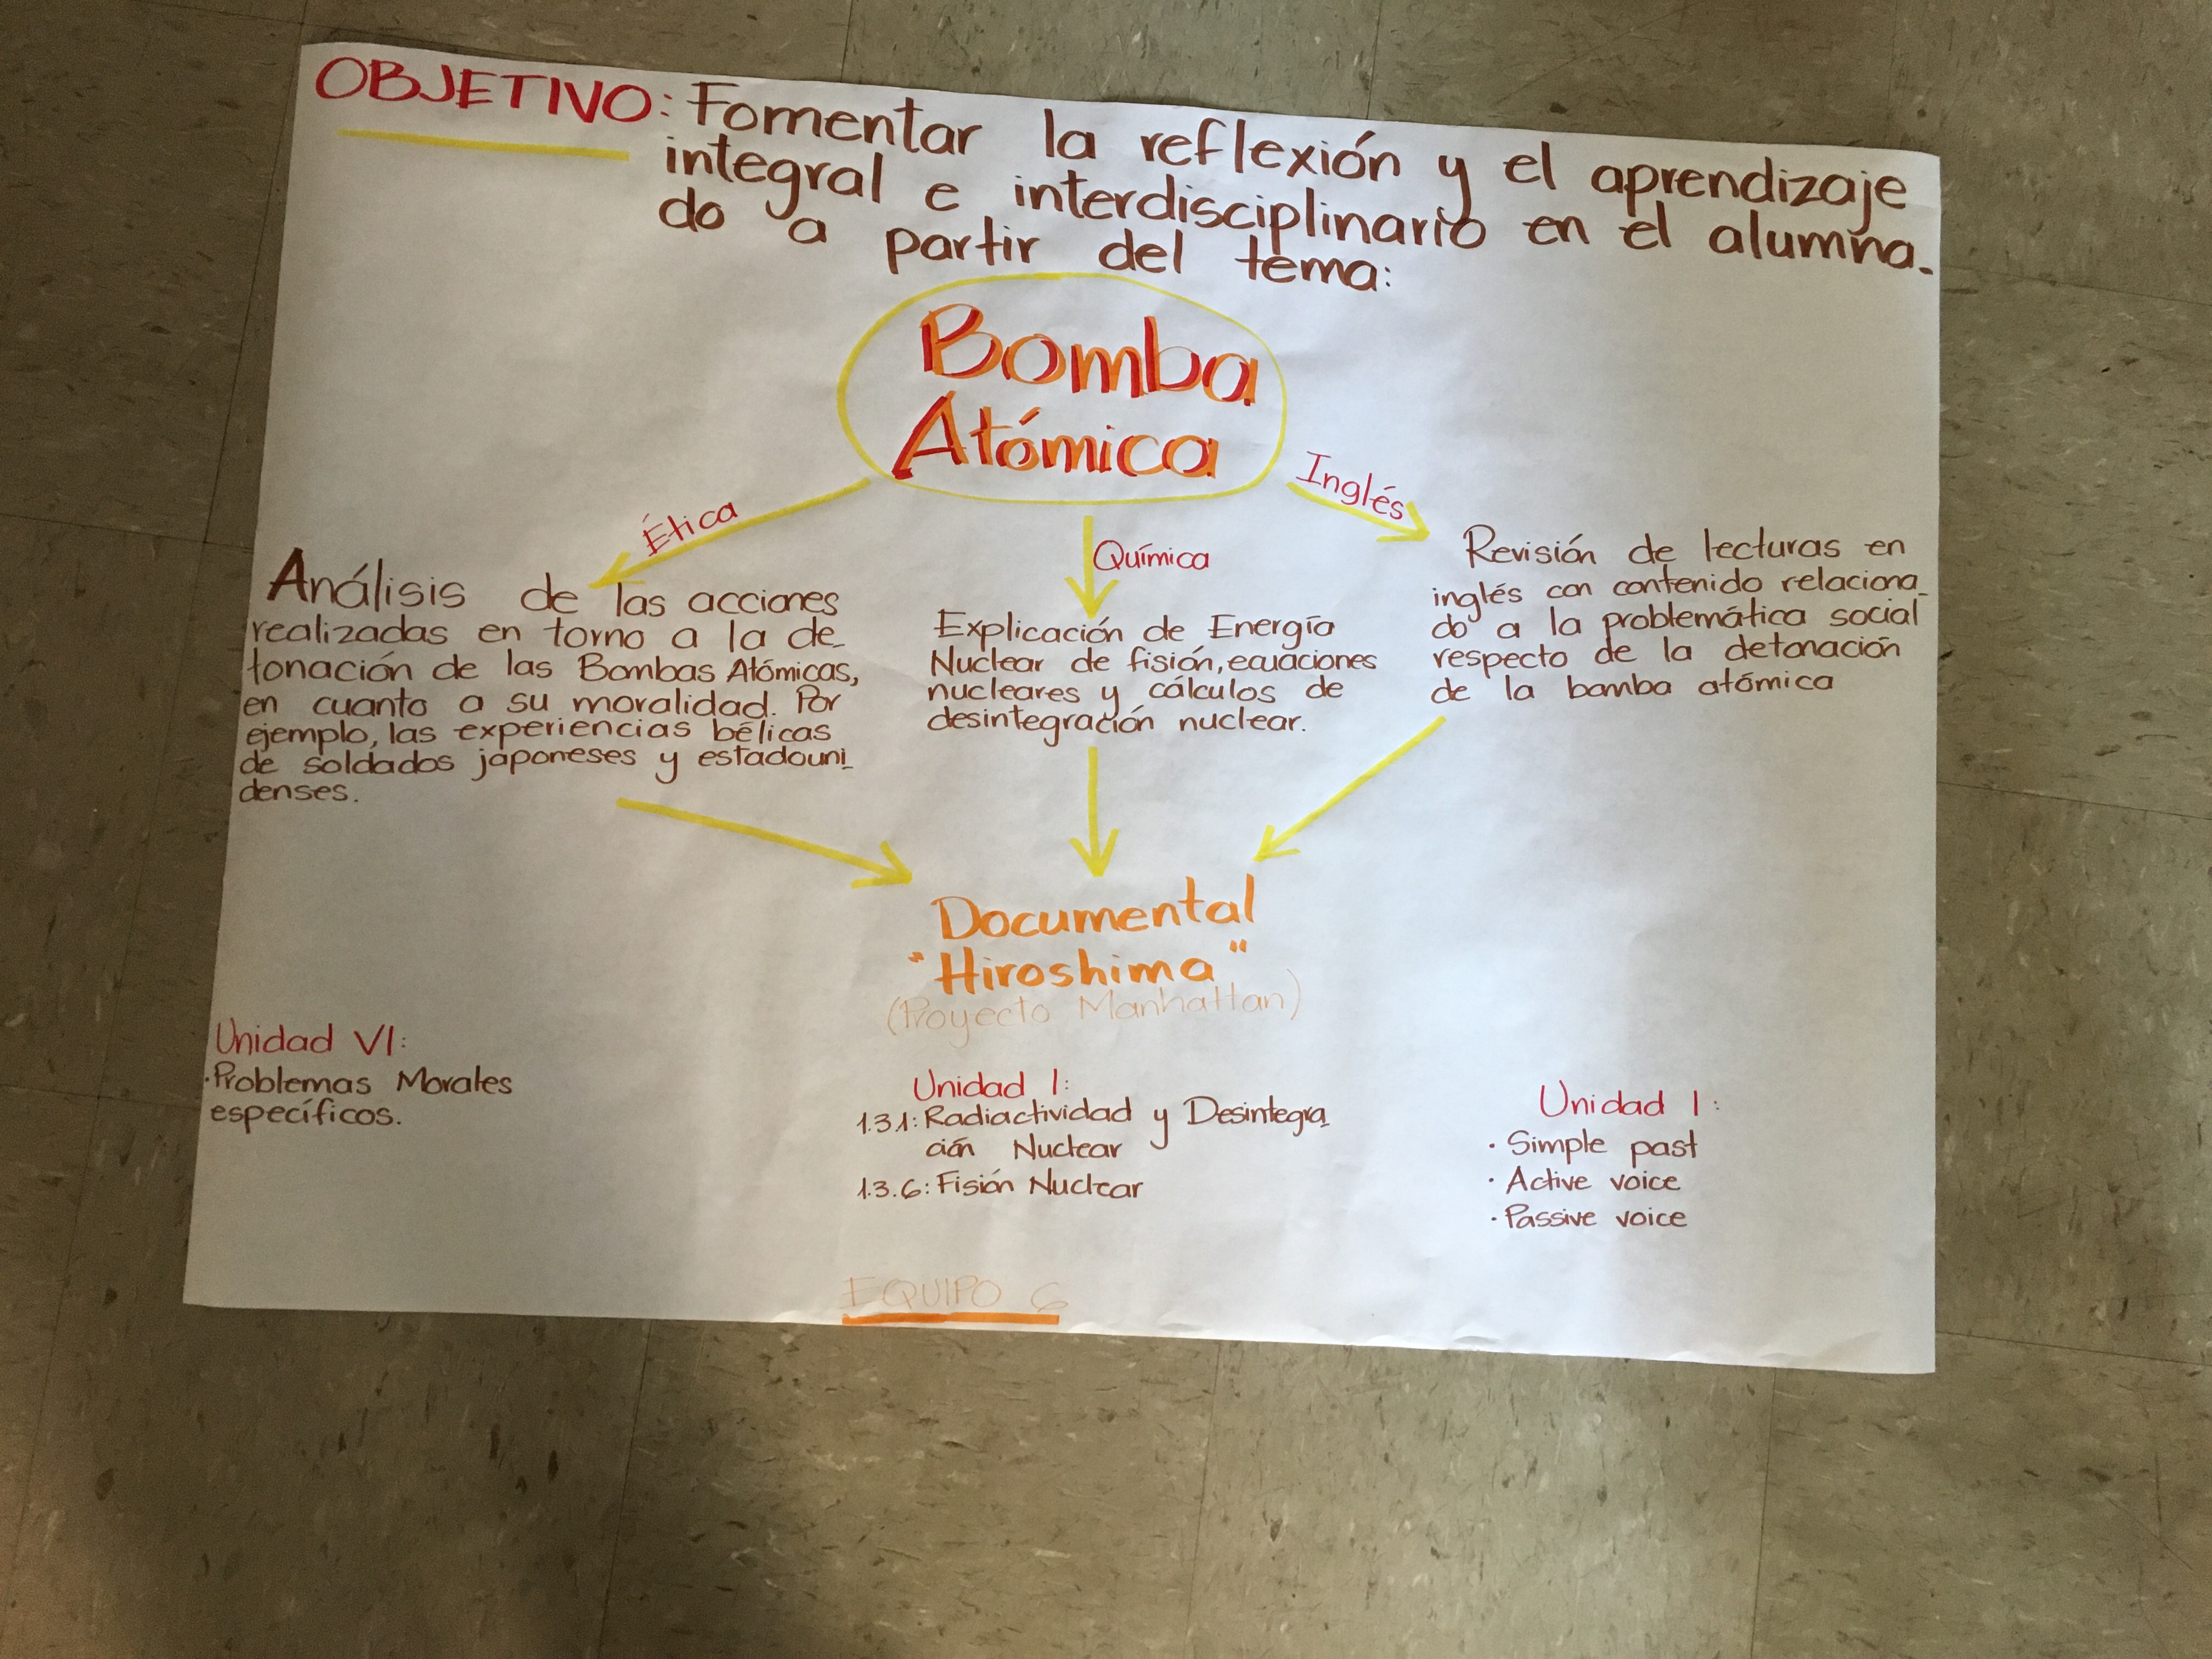 OBJETIVO: Fomentar la reflexión y el aprendizaje
integral e interdisciplinario en el alumna-
do a partir del tema:
Bomba
Atómica
Ética
Análisis de las acciones
realizadas en torno a la de-
tonación de las Bombas Atómicas,
en cuanto a su moralidad. Por
ejemplo, las experiencias bélicas
de soldados japoneses y estadouni-
denses.
Química
Explicación de Energía
Nuclear de fisión, ecuaciones
nucleares y cálculos de
desintegración nuclear.
Inglés
Revisión de lecturas en
inglés con contenido relaciona-
do a la problemática social
respecto de la detonación
de la bomba atómica
Documental
"Hiroshima"
(Proyecto Manhattan)
Unidad VI:
·Problemas Morales
específicos.
Unidad 1:
1.3.1: Radiactividad y Desintegra-
ción Nuclear
1.3.6: Fisión Nuclear
Unidad 1:
· Simple past
· Active voice
· Passive voice
EQUIPO 6